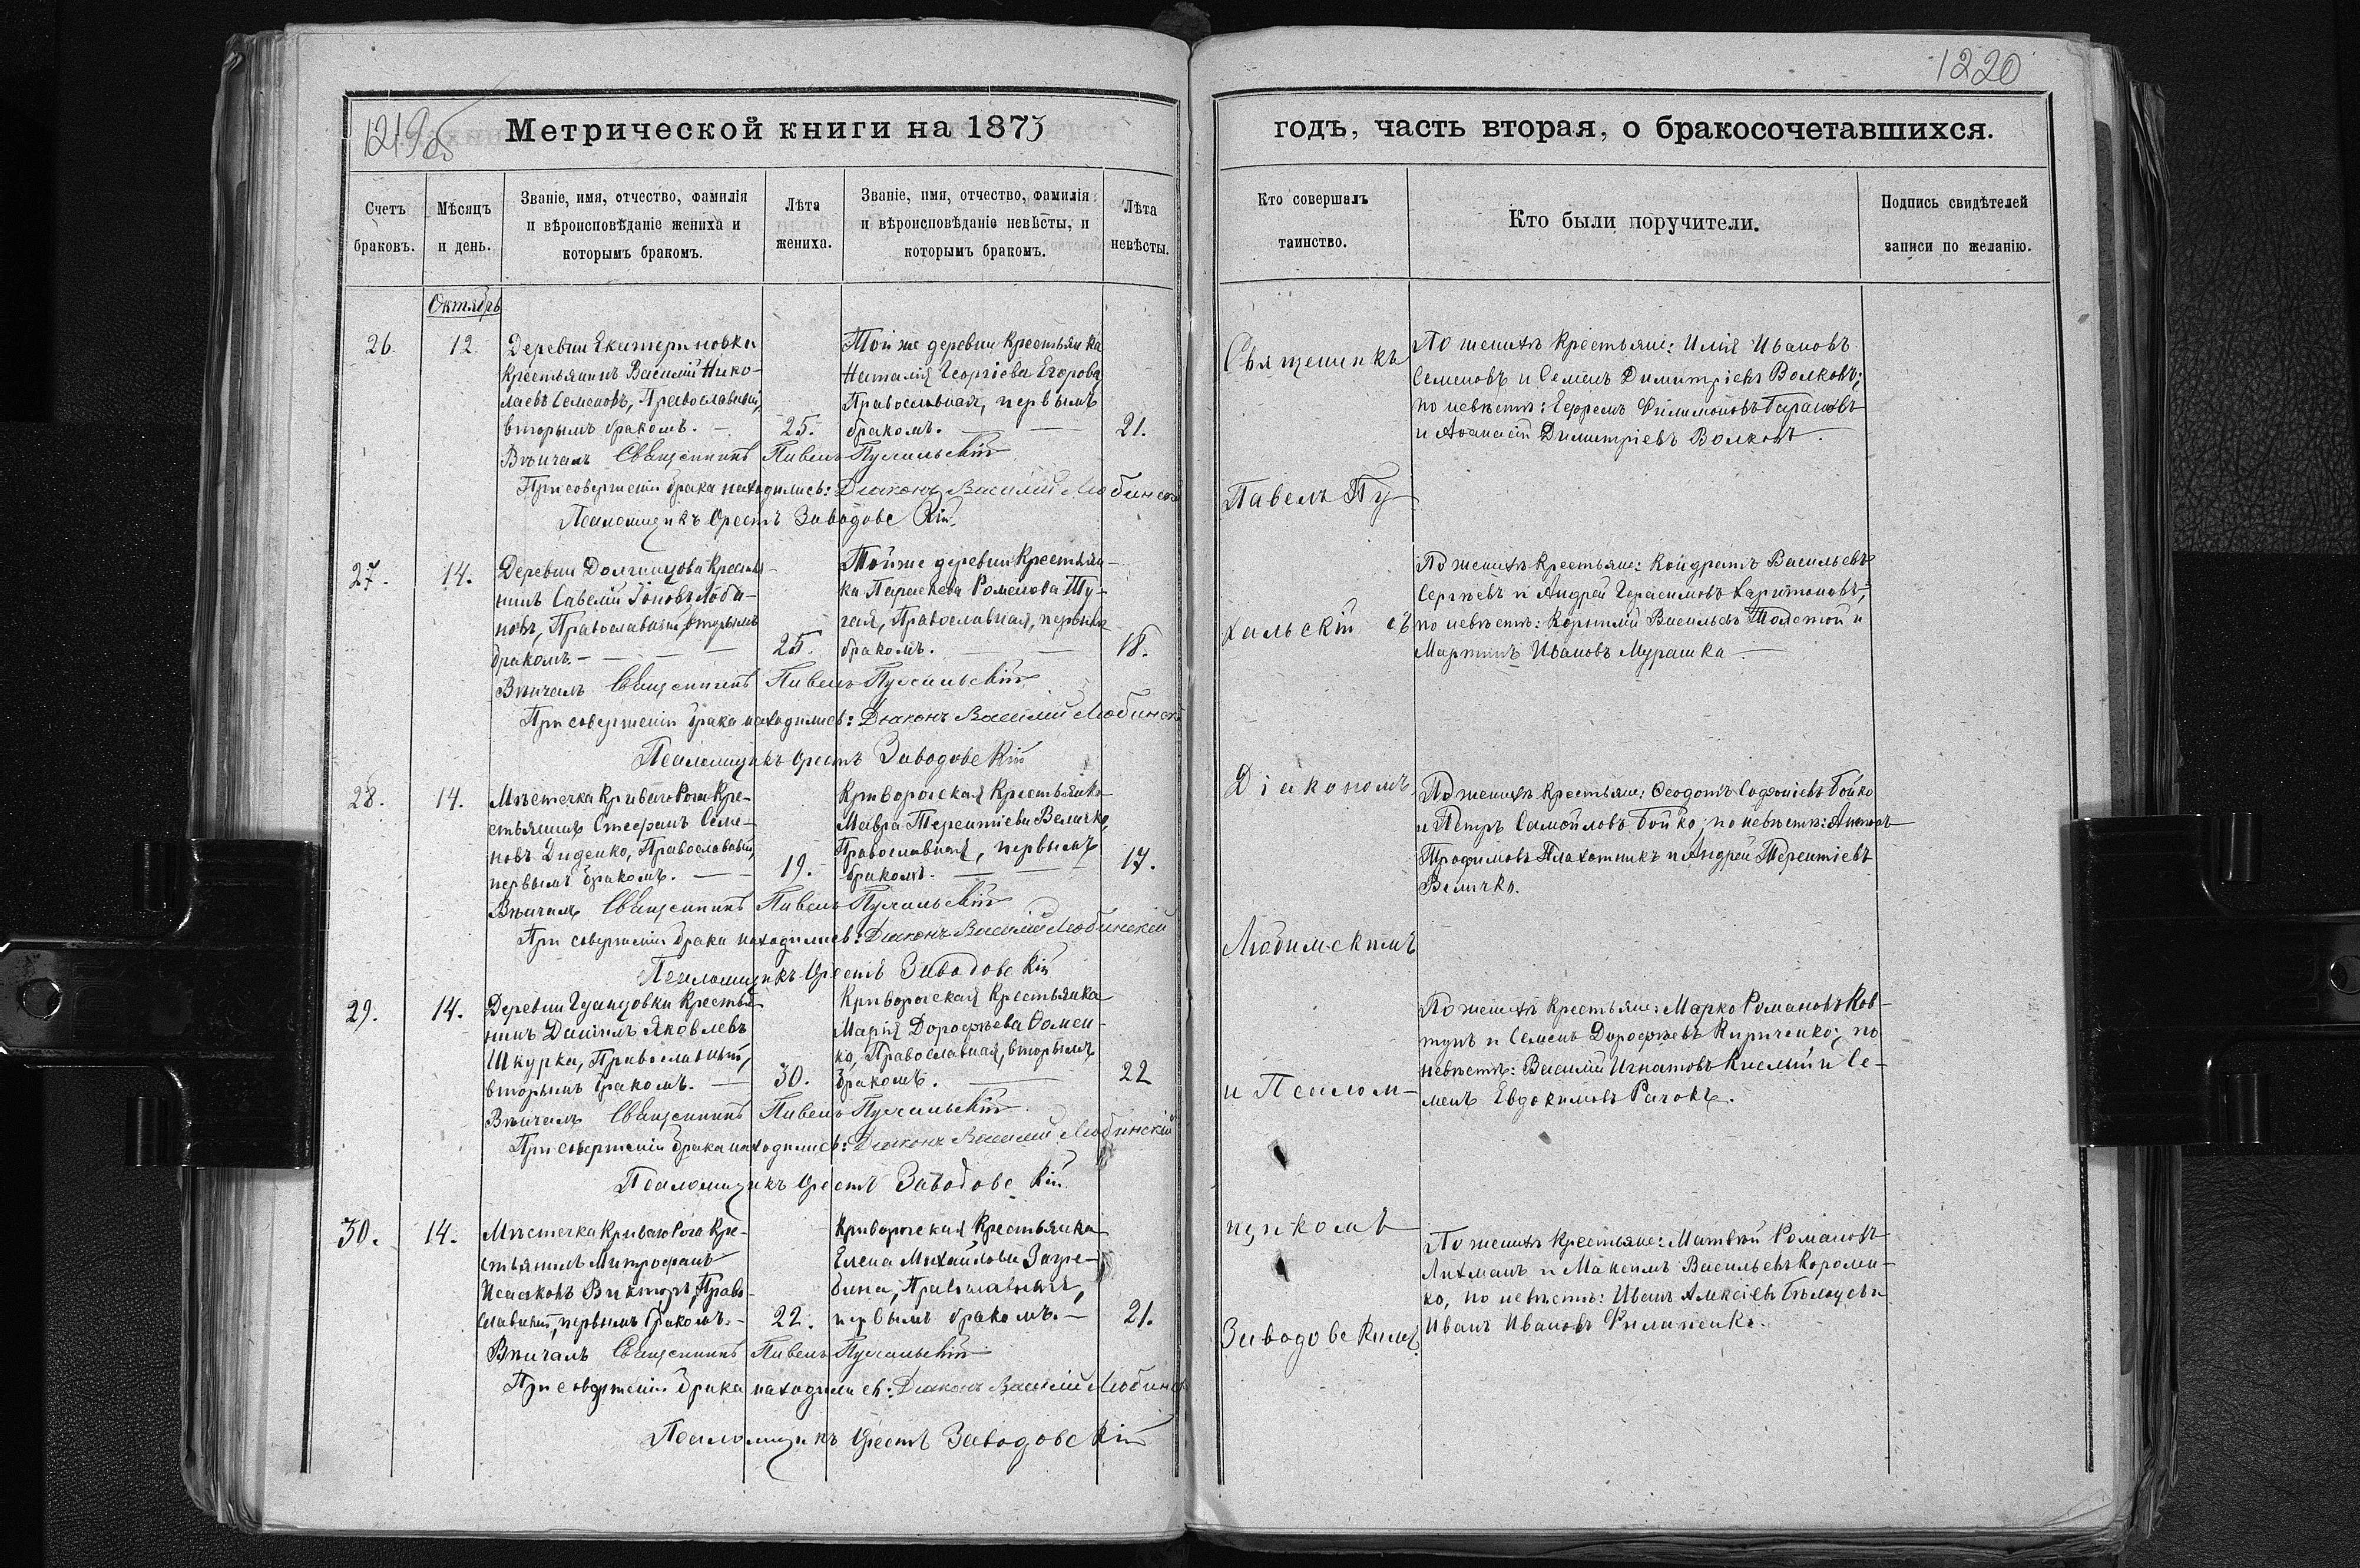 1219об
Метрической книги на 1873
Счетъ браковъ.
Мѣсяцъ и день.
Званіе, имя, отчество, фамилія и вѣроисповѣданіе жениха и которымъ бракомъ.
Лѣта жениха.
Званіе, имя, отчество, фамилія и вѣроисповѣданіе невѣсты, и которымъ бракомъ.
Лѣта невѣсты.
Октябрь
26. 12.
Деревни Екатериновки
Крестьянинъ Василій Нико-
лаевъ Семеновъ, Православный,
вторымъ бракомъ. —
25.
Той же деревни Крестьянка
Наталія Георгіева Егорова,
Православная, первымъ
бракомъ. —
21.
Вѣнчалъ Священникъ Павелъ
При совершеніи брака находились: Діаконъ Василій Любинскій
Псаломщикъ Орестъ Заводовскій
27. 14.
Деревни Долгинцова Крестья-
нинъ Савелій Іоновъ Лоба-
новъ, Православный, вторымъ
бракомъ. —
25.
Той же деревни Крестьян-
ка Параскева Романова Ту-
гая, Православная, первымъ
бракомъ. —
18.
Вѣнчалъ Священникъ Павелъ
При совершеніи брака находились: Діаконъ Василій Любинскій
Псаломщикъ Орестъ Заводовскій
28. 14.
Мѣстечка Криваго Рога Кре-
стьянинъ Стефанъ Семе-
новъ Диденко, Православный,
первымъ бракомъ. —
19.
Криворожская Крестьянка
Мавра Терентіева Величко,
Православная, первымъ
бракомъ. —
17.
Вѣнчалъ Священникъ Павелъ
При совершеніи брака находились: Діаконъ Василій Любинскій
Псаломщикъ Орестъ Заводовскій
29. 14.
Деревни Гданцовки Крестья-
нинъ Даніилъ Яковлевъ
Шкурка, Православный,
вторымъ бракомъ. —
30.
Криворожская Крестьянка
Марія Дорофѣева Фомен-
ко, Православная, вторымъ
бракомъ. —
22
Вѣнчалъ Священникъ Павелъ
При совершеніи брака находились: Діаконъ Василій Любинскій
Псаломщикъ Орестъ Заводовскій
30. 14.
Мѣстечка Криваго Рога Кре-
стьянинъ Митрофанъ
Исааковъ Викторъ, Право-
славный, первымъ бракомъ. —
22.
Криворожская Крестьянка
Елена Михайлова Загре-
бина, Православная,
первымъ бракомъ. —
21.
Вѣнчалъ Священникъ Павелъ
При совершеніи брака находились: Діаконъ Василій Любинскій
Псаломщикъ Орестъ Заводовскій
1220
годъ, часть вторая, о бракосочетавшихся.
Кто совершалъ таинство.
Кто были поручители.
Подпись свидѣтелей записи по желанію.
Священникъ
Павелъ Пу-
хальскій съ
Діакономъ
Любинскимъ
и Псалом-
щикомъ
Заводовскимъ.
По женихѣ Крестьяне: Илія Ивановъ
Семеновъ и Семенъ Димитріевъ Волковъ;
по невѣстѣ: Ефремъ Филимоновъ Тарановъ
и Аѳанасій Димитріевъ Волковъ.
По женихѣ Крестьяне: Кондратъ Васильевъ
Сергѣевъ и Андрей Герасимовъ Харитоновъ;
по невѣстѣ: Корнилій Васильевъ Толстой и
Мартинъ Ивановъ Мурашка —
По женихѣ Крестьяне: Ѳеодотъ Софоніевъ Бойко
и Петръ Самойловъ Бойко; по невѣстѣ: Антонъ
Трофимовъ Плахотникъ и Андрей Терентіевъ
Величко.
По женихѣ Крестьяне: Марко Романовъ Ков-
тунъ и Семенъ Дорофѣевъ Кириченко; по
невѣстѣ: Василій Игнатовъ Кислый и Се-
менъ Евдокимовъ Рачокъ.
По женихѣ Крестьяне: Матвѣй Романовъ
Лихманъ и Максимъ Васильевъ Коромен-
ко, по невѣстѣ: Иванъ Алексіевъ Бѣлоусъ и
Иванъ Ивановъ Филипенко.